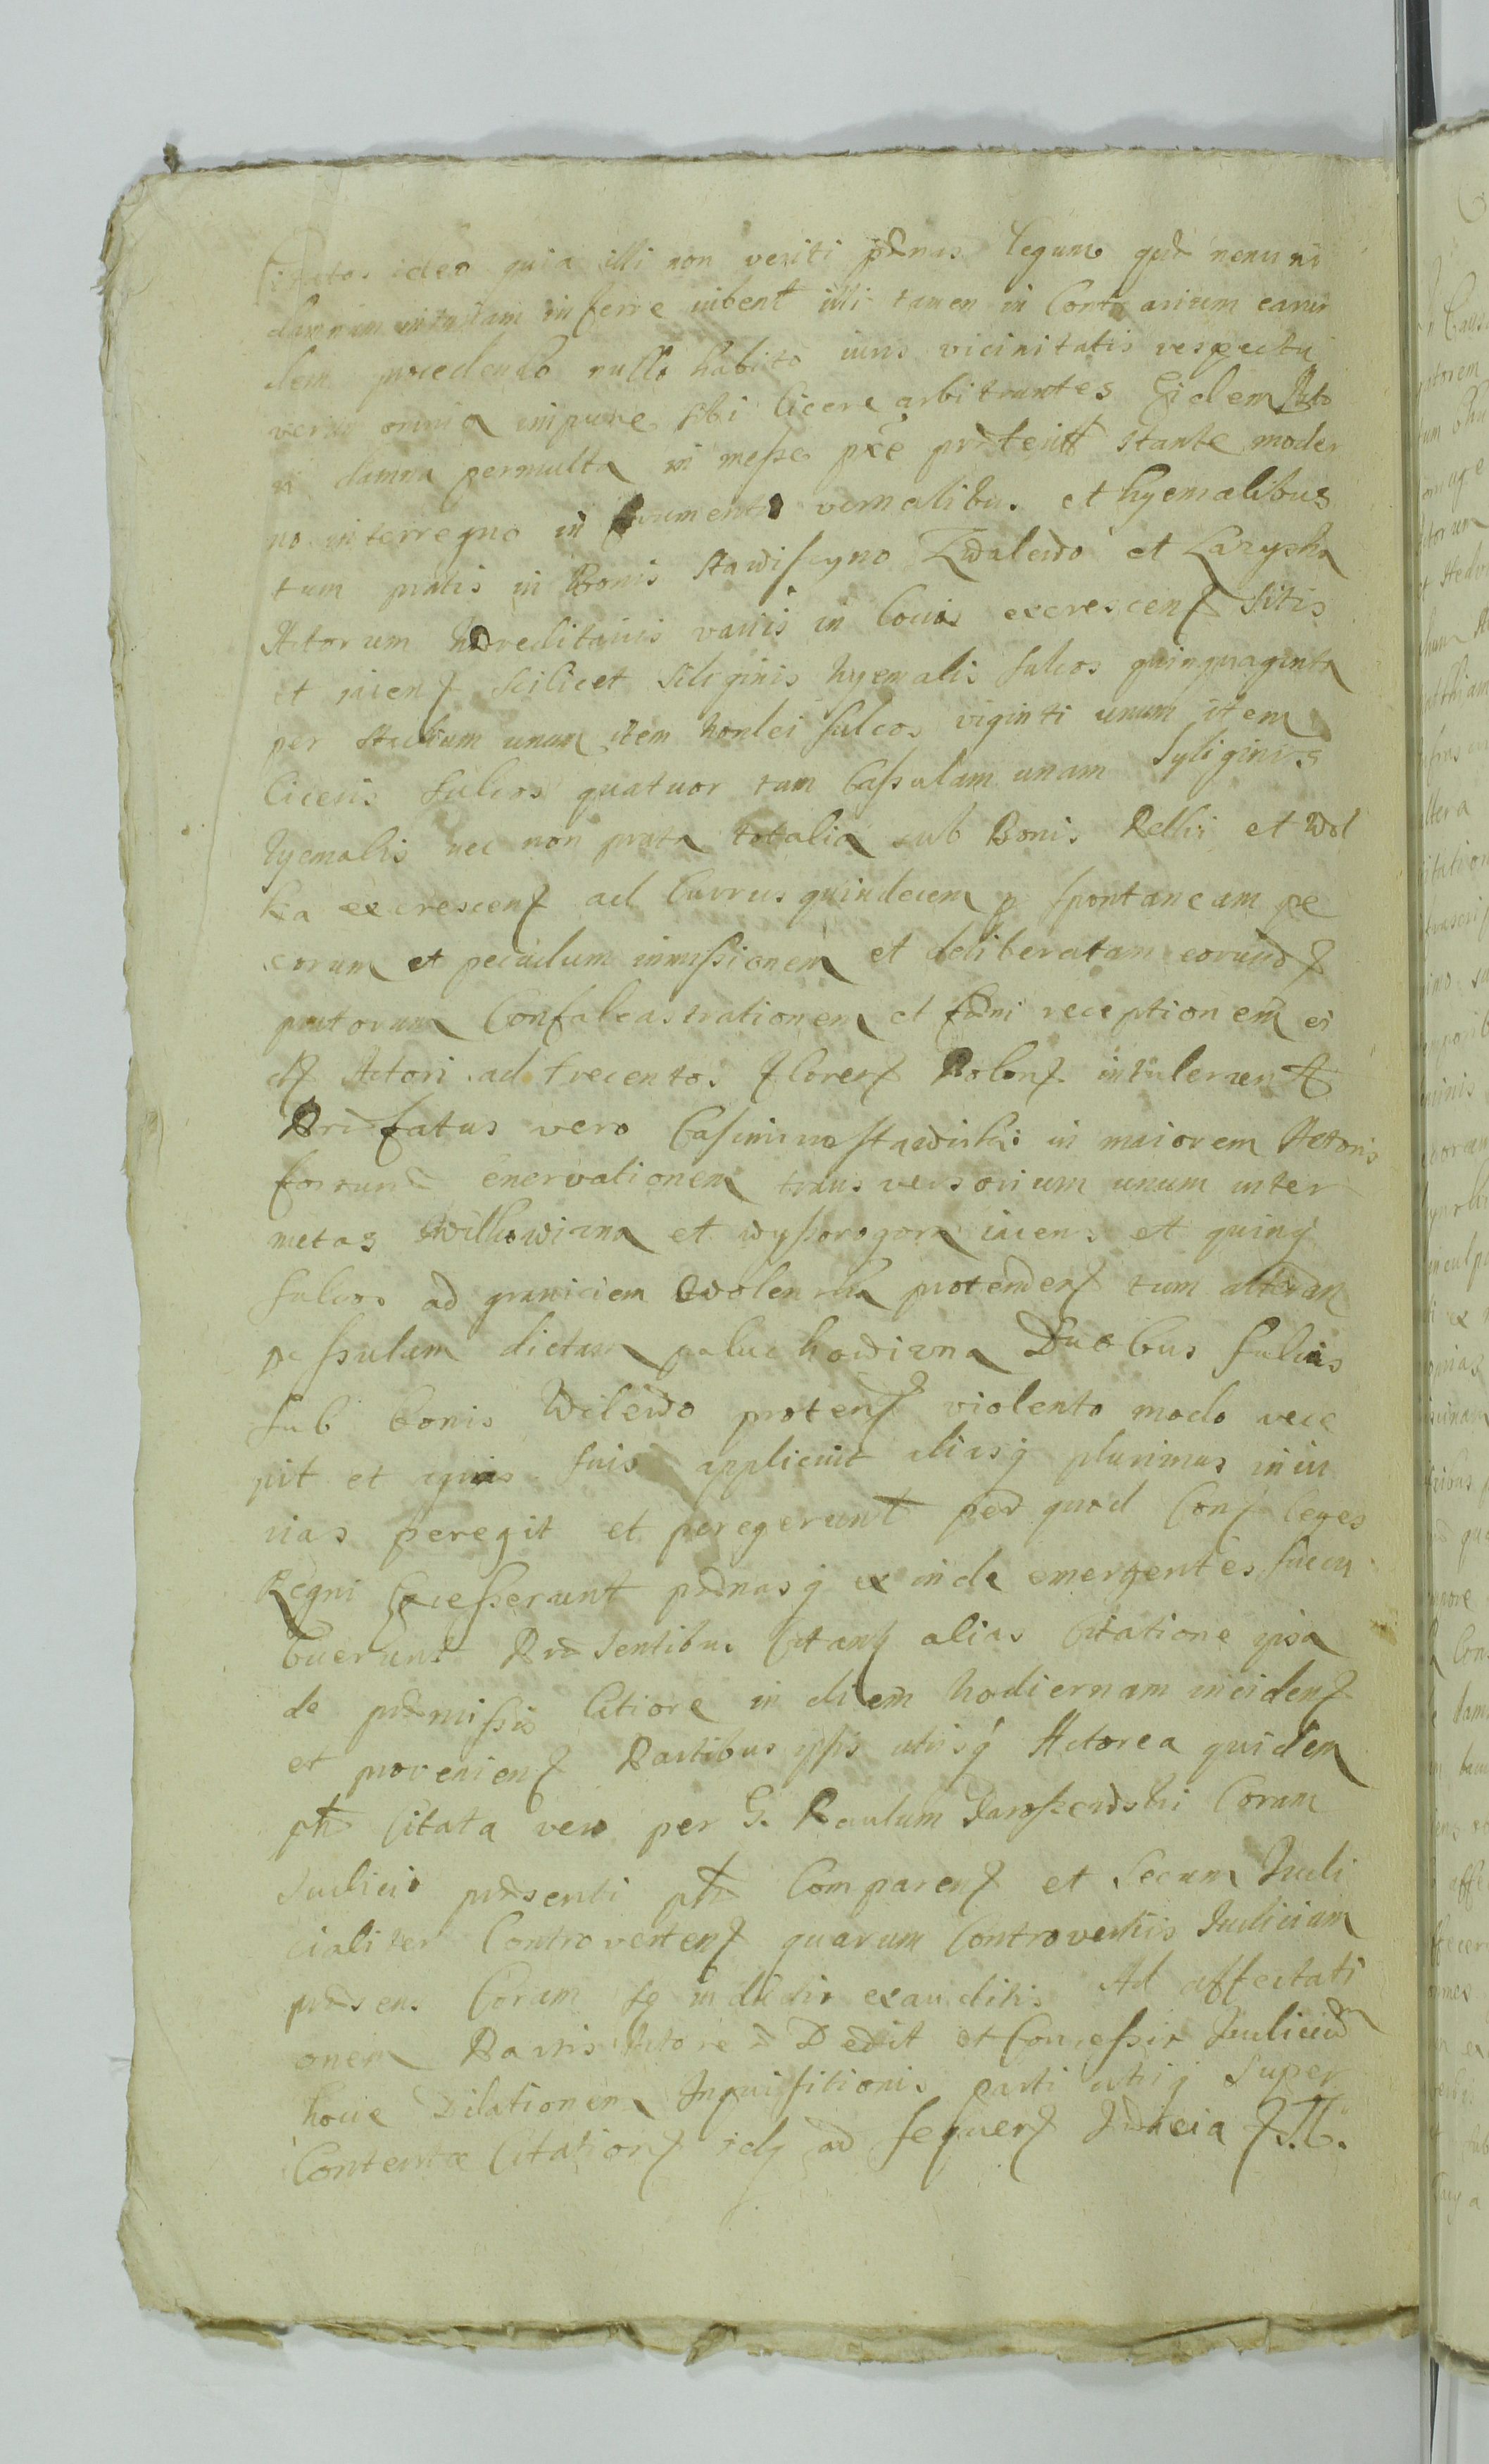 Citatos ideo quia illi non veriti pænas legum quæ nemini
damnum inferre iubent illi tamen in Contrarium earun
dem procedendo nullo habito iuris vicinitatis respectu
verum omnia impune sibi licere arbitrantes Eidem Acto
ri damna permulta in messe pxe præterit stante moder
no interregno in frumentis vernalibus et hyemalibus
tum pratis in Bonis Stawiszyno Zwalewo et Łazyska
Actorum Hæreditariis variis in locis excrescen sitis
et iacen scilicet siliginis hyemalis sulcos quinquaginta
per stadium unum item hordei sulcos viginti unum item
Ciceris sulcos quatuor tum Cassulam unam Syliginis
hyemalis nec non prata totalia sub Bonis Relki et Wol
ka excrescen ad Currus quindecem p spontaneam pe
corum et pecudum immissionem et deliberatam eorund
pratorum Confalcastrationem et fæni receptionem ei
d Actori ad trecentos floren Polon intulerunt
Præfatus vero Casimirus Stawiski in maiorem Actoris
fortunæ enervationem transversorium unum inter
metas Wilkowizna et Wyszorogora iacens et quinq
sulcos ad graniciem Wolenska protenden tum alteram
pessulum dictam paluchowizna Duobus sulcis
sub bonis Wilewo proten violento modo rece
pit et agris suis applicuit aliasq plurimas iniu
rias peregit et peregerunt per quod Con leges
Regni Excesserunt pænasq exinde emergentes succu
buerunt Præsentibus Citan alias Citatione ipsa
de præmissis latiore in diem hodiernam inciden
et provenien Partibus ipsis utrisq Actorea quidem
pth Citata vero per G. Paulum Jaroszewski Coram
Judicio præsenti pth Comparen et secum Judi
cialiter Controverten quarum Controversiis Judicium
præsens Coram se inde exauditis Ad affectati
onem Partis Actoreæ Dedit et Concessit Judicium
hocce Dilationem Inquisitionis parti utriq super
Contenta Citation idq ad sequen Judicia